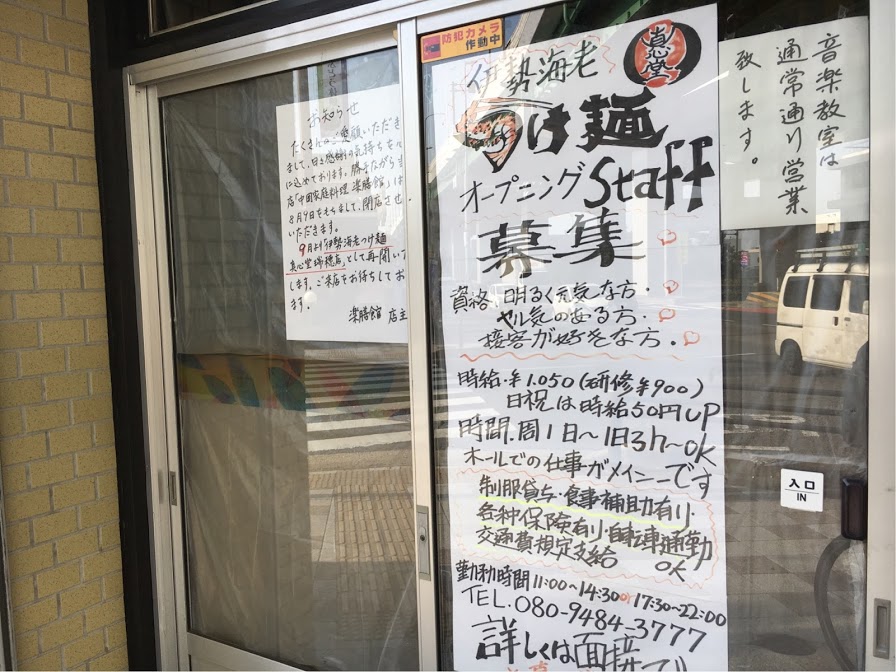 お知らせ
たくさんのご愛顧いただき
まして、日々感謝の気持ちを心
に込めております。勝手ながら当
店「中国家庭料理 楽膳館」は
8月9日をもちまして、閉店させ
いただきます。
9月より「伊勢海老つけ麺
真心堂 瑞穂店」として再開いた
します。ご来店をお待ちしてお
ます。
楽膳館 店主
防犯カメラ
作動中
真心堂
伊勢海老
つけ麺
オープニングStaff
募集
資格.明るく元気な方.
ヤル気のある方.
接客が好きな方.
時給.¥1.050(研修¥900)
日祝は時給50円UP
時間.周1日〜1日3h〜OK
ホールでの仕事がメインです
制服貸与・食事補助有り.
各種保険有り・自転車通勤
OK
交通費規定支給
勤務時間11:00〜14:30or17:30〜22:00
TEL.080-9484-3777
詳しくは面接にて
音楽教室は
通常通り営業
致します。
入口
IN